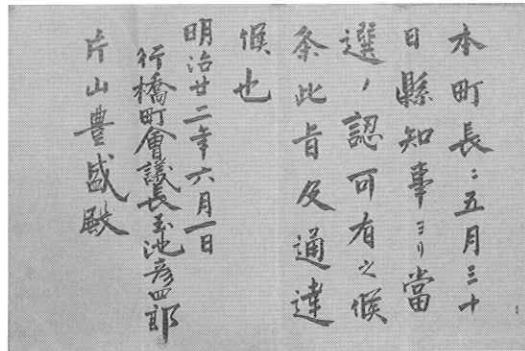 本町長ニ五月三十
日縣知事ヨリ當
選ノ認可有之候
条此旨及通達
候也
明治廿二年六月一日
行橋町會議長玉池彦四郎
片山豊盛殿